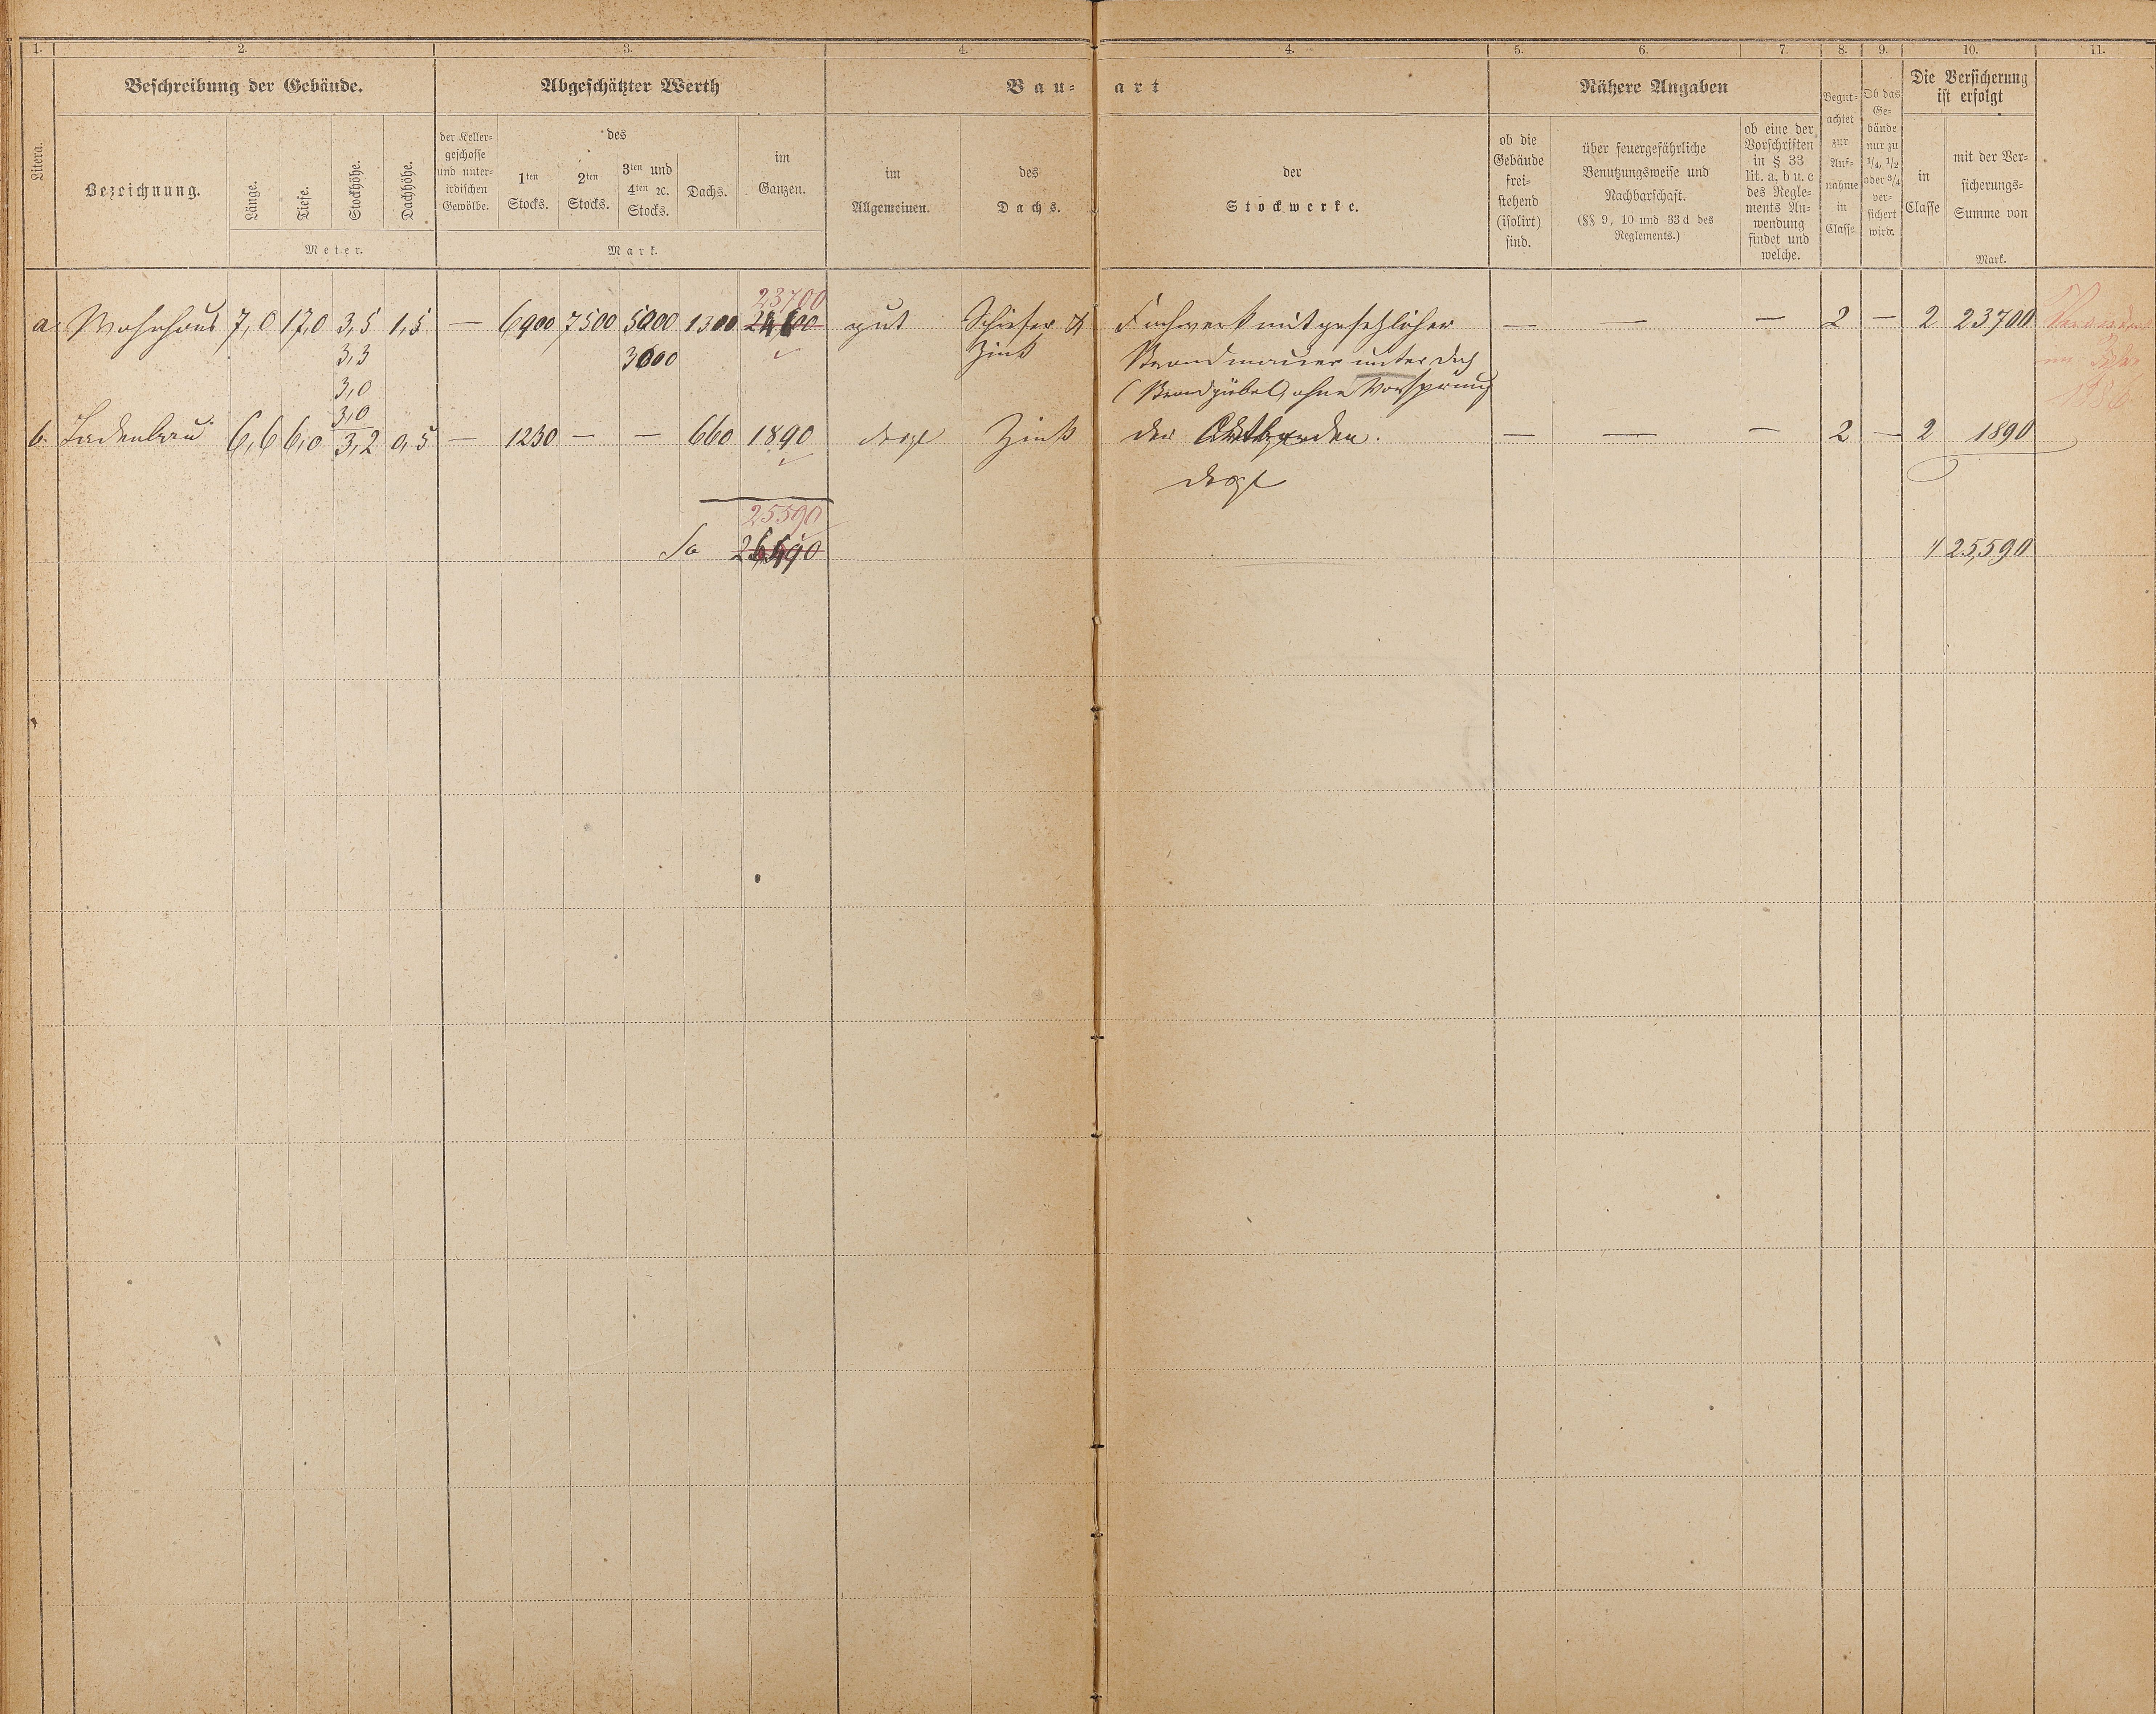 1. 2. 3. 4. 4. 5. 6. 7. 8. 9. 10. 11.
Litera.
Beschreibung der Gebäude.
Bezeichnung.
Länge.
Tiefe.
Stockhöhe.
Dachhöhe.
Meter.
Abgeschätzter Werth
der Keller-
geschosse
und unter-
irdischen
Gewölbe.
des
1ten
Stocks.
2ten
Stocks.
3ten und
4ten ꝛc.
Stocks.
Dachs.
im
Ganzen.
Mark.
Bau-
im
Allgemeinen.
des
Dachs.
art
der
Stockwerke.
Nähere Angaben
ob die
Gebäude
frei-
stehend
(isolirt)
sind.
über feuergefährliche
Benutzungsweise und
Nachbarschaft.
(§§ 9, 10 und 33d des
Reglements.)
ob eine der
Vorschriften
in § 33
lit. a, b u. c
des Regle-
ments An-
wendung
findet und
welche.
Begut-
achtet
zur
Auf-
nahme
in
Classe
Ob das
Ge-
bäude
nur zu
1/4, 1/2
oder 3/4
ver-
sichert
wird.
Die Versicherung
ist erfolgt
in
Classe
mit der Ver-
sicherungs-
Summe von
Mark.
23700
a. Wohnhaus 7,0 17,0 3,5 1,5 — 6900 7500 5000 1300 gut Schiefer & Fachwerk mit gesetzlicher — — — 2 — 2 23700
3,3 3000 Zink Brandmauer unter Dach
3,0 (Brandgiebel, ohne Vorsprung
3,0
b. Ladenbau 6,6 6,0 3,2 0,5 — 1230 — — 660 1890 desgl Zink — — — 2 — 2 1890
desgl
25590
Sa 25,590